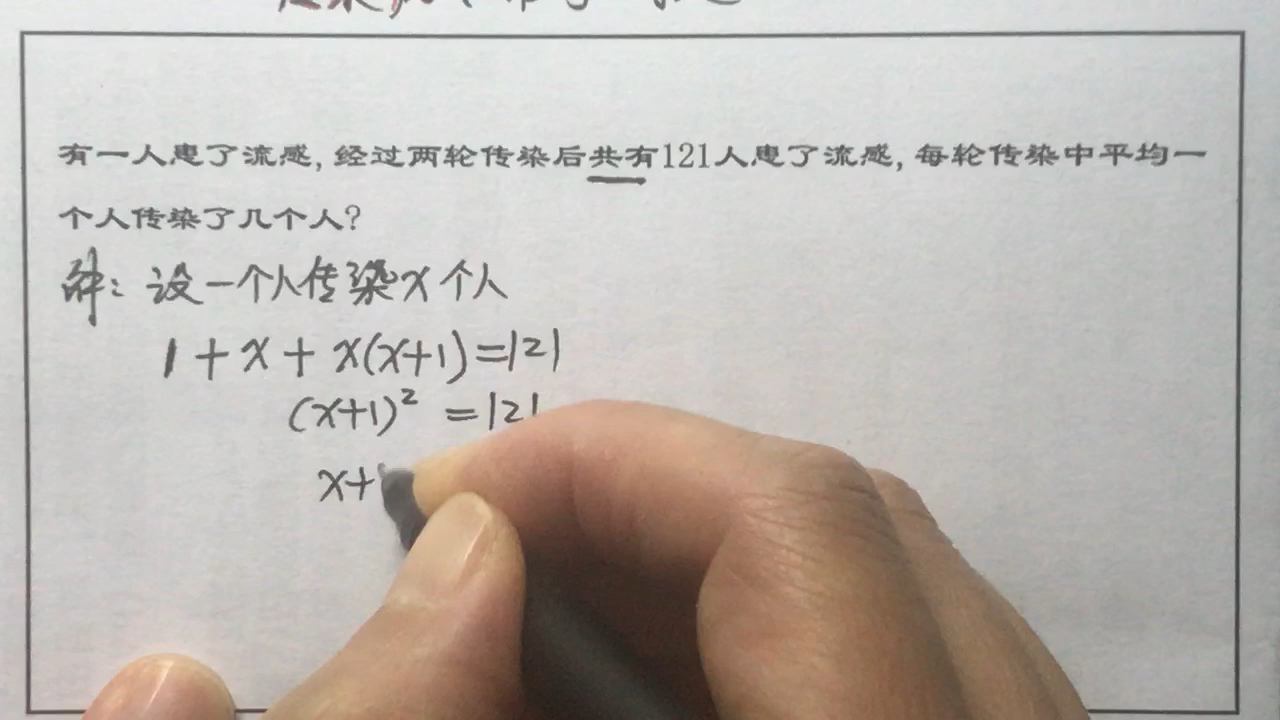 有一人患了流感,经过两轮传染后共有121人患了流感,每轮传染中平均一
个人传染了几个人?
解:设一个人传染x个人
1+x+x(x+1)=121
(x+1)² =121
x+